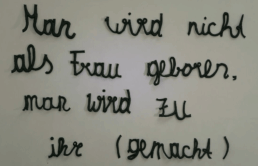 Man wird nicht
als Frau geboren,
man wird zu
ihr (gemacht)